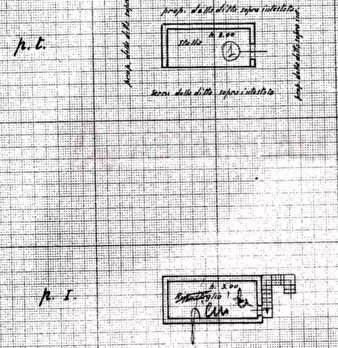 prop. della ditta sopra intestata
p. t.
h 3.00
Stalla
prop. della ditta sopra
prop. della ditta sopra int.
terra della ditta sopra intestata
p. I.
h. 3.00
Ripostiglio